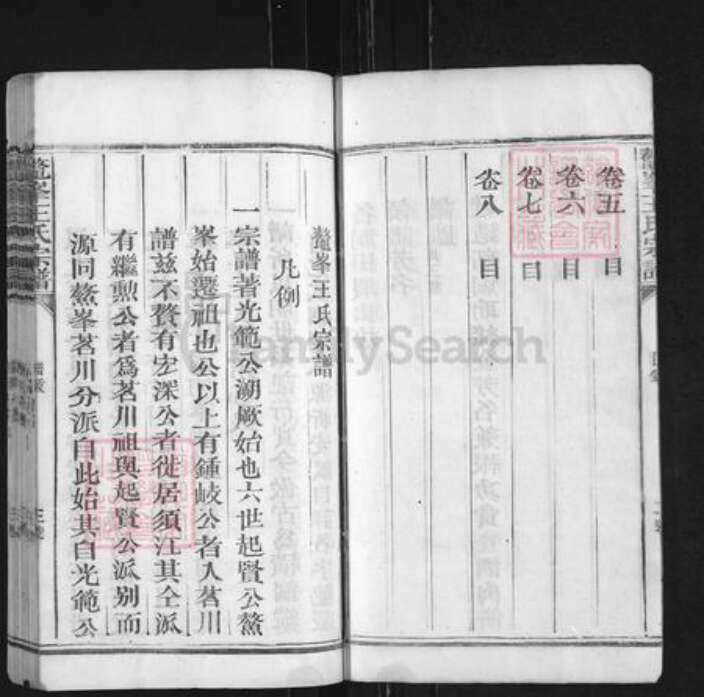 鰲峯王氏宗譜
卷五 目
卷六 目
卷七 目
卷八 目
鰲峯王氏宗譜
凡例
一宗譜著光範公溯厥始也六世起賢公鰲
峯始遷祖也公以上有鍾岐公者入茗川
譜茲不贅有宏深公者徙居須江其仝派
有繼勲公者爲茗川祖與起賢公派别而
源同鰲峯茗川分派自此始其自光範公
鰲峯王氏宗譜
FamilySearch